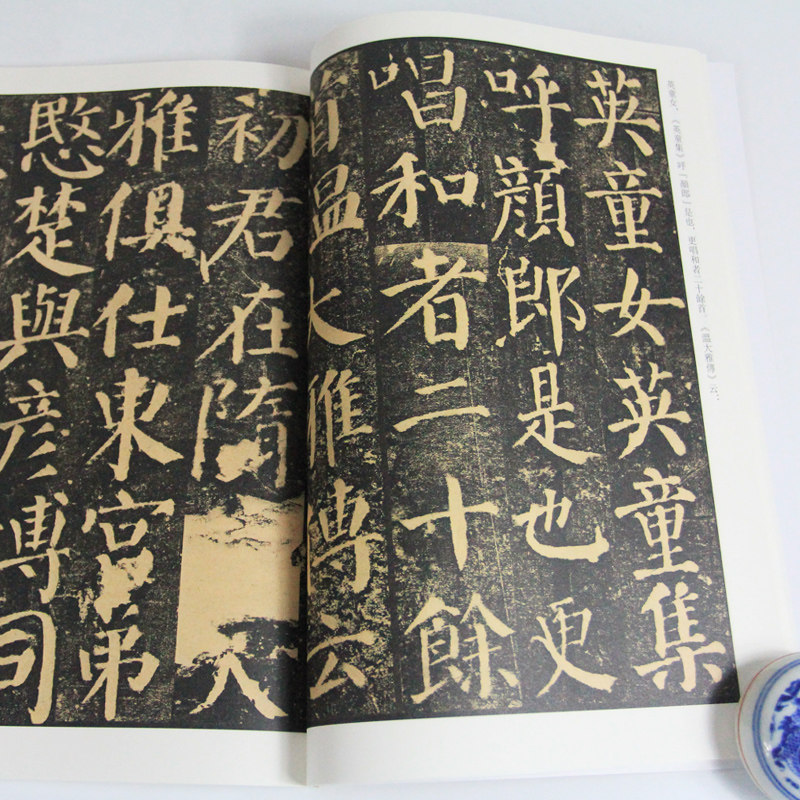 英童女，《英童集》呼「顏郎」是也，更唱和者二十餘首。《溫大雅傳》云：
英童女英童集
呼顏郎是也更
唱和者二十餘
首溫大雅傳云
初君在隋大
雅俱仕東宮弟
愍楚與彥博同